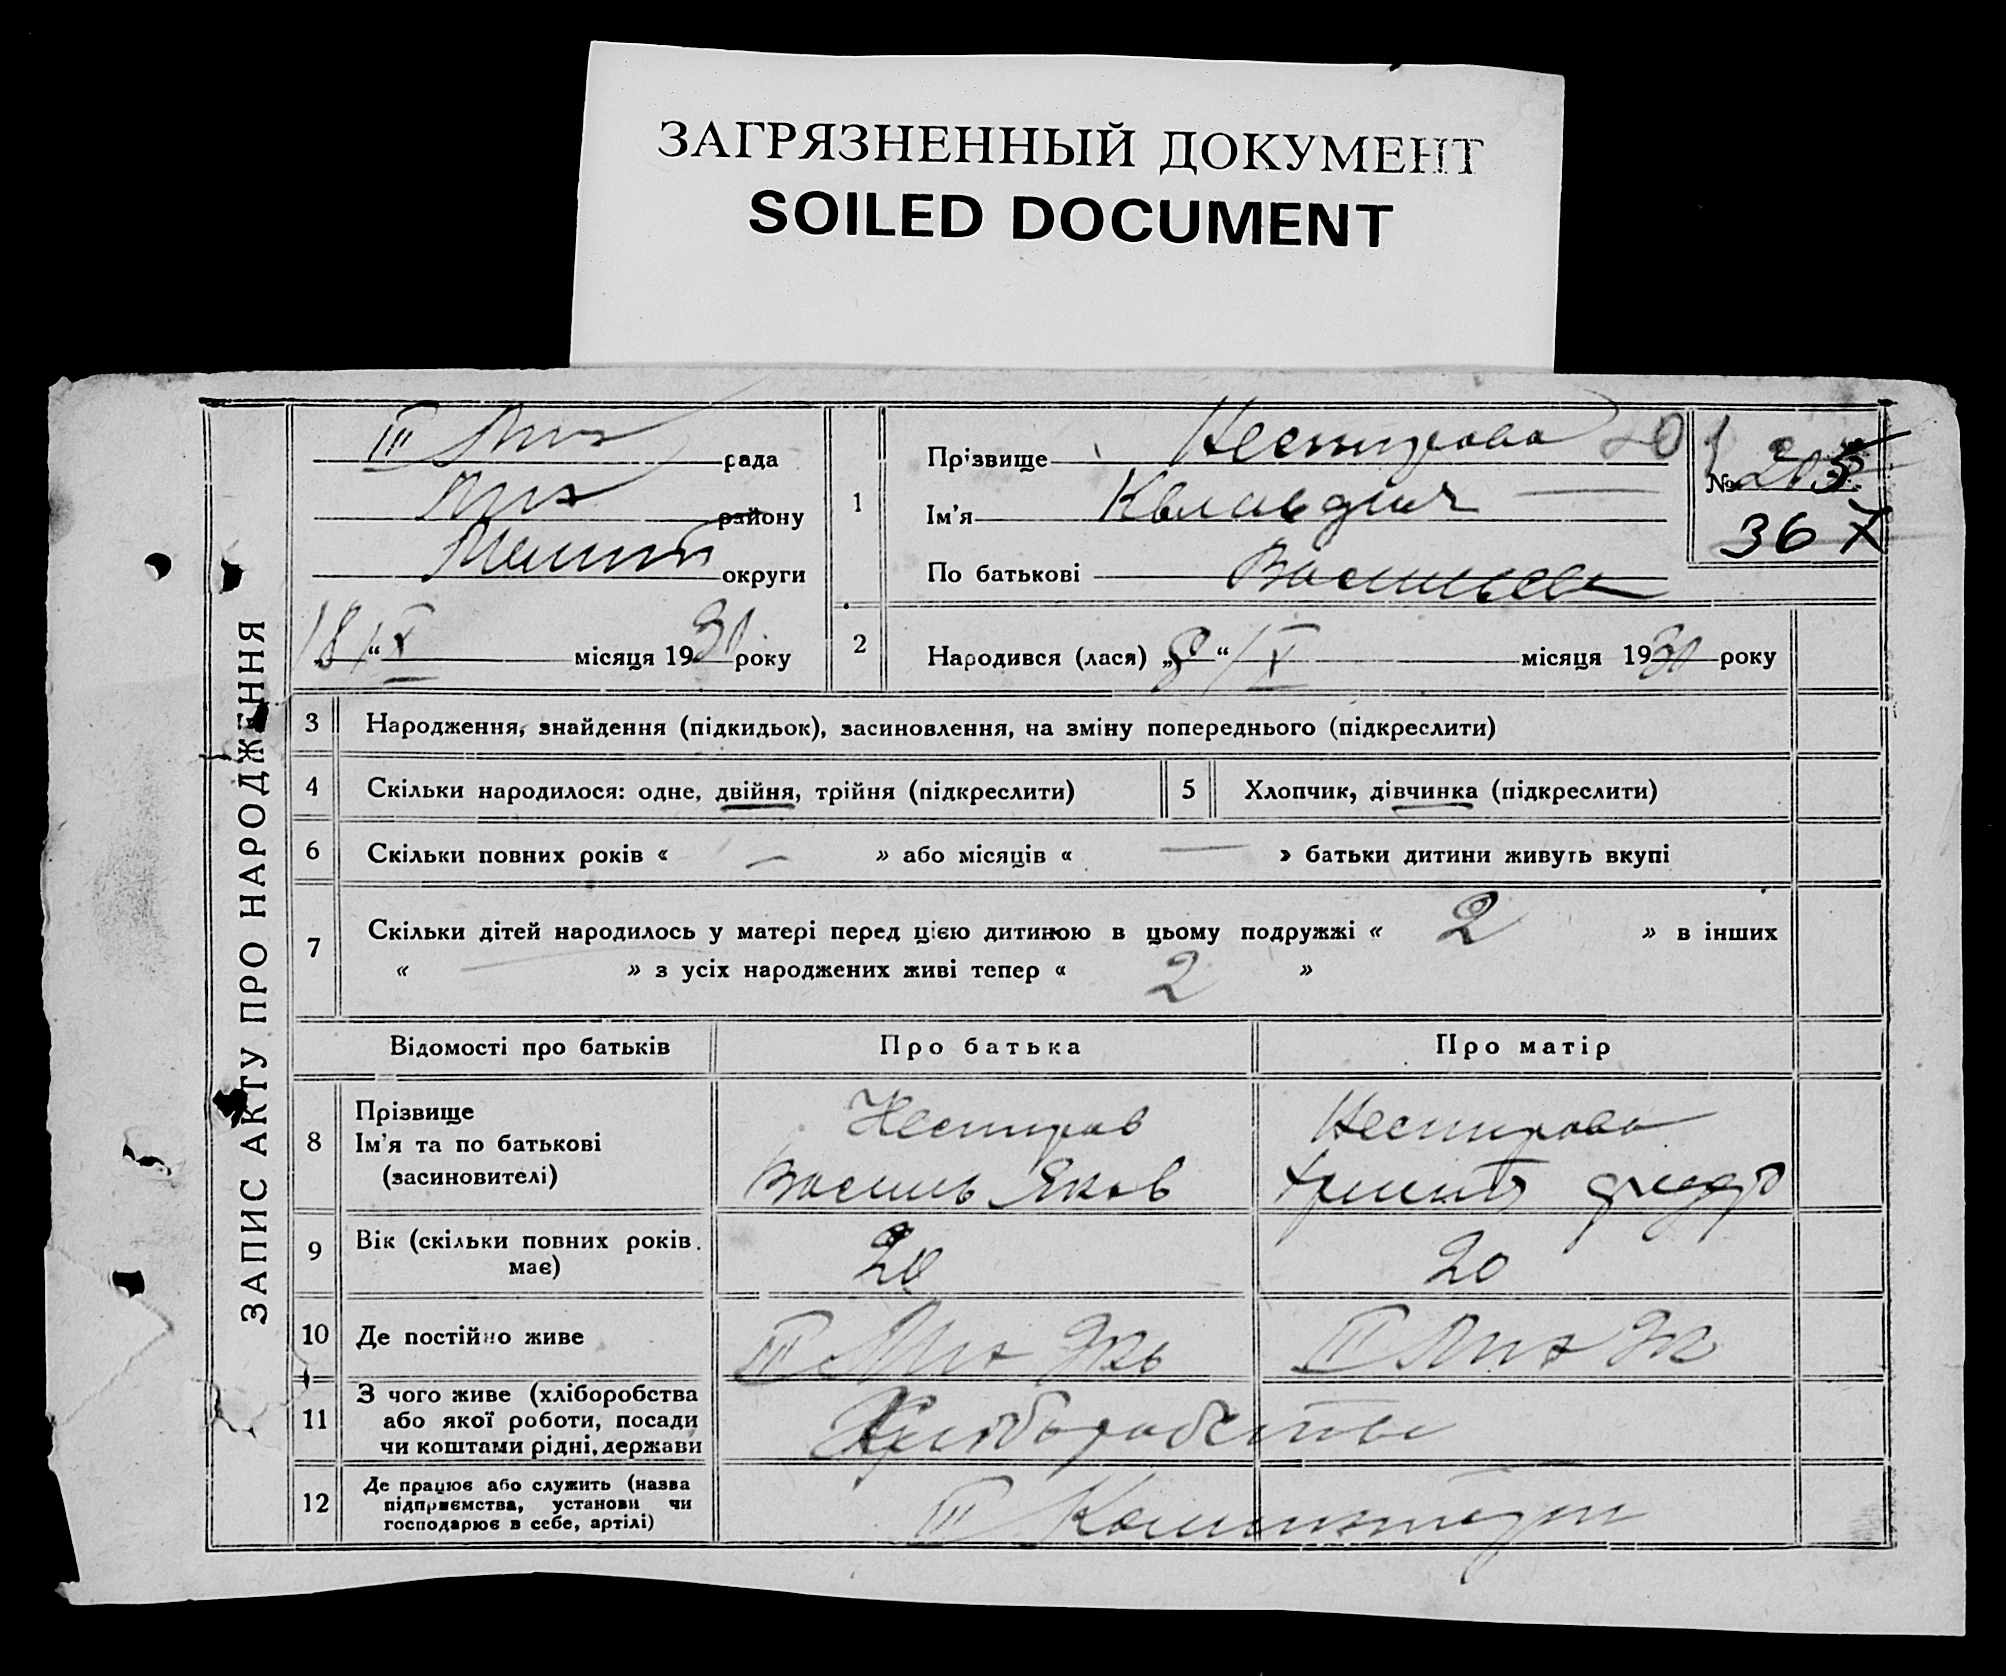 ЗАГРЯЗНЕННЫЙ ДОКУМЕНТ
SOILED DOCUMENT
ЗАПИС АКТУ ПРО НАРОДЖЕННЯ
III рада
району
округи
18/“ X місяця 1930 року
1
Прізвище Нестирова
Ім’я Клавдия
По батькові Васильев
№ 205
367
2 Народився (лася) „8“ / X місяця 1930 року
3 Народження, знайдення (підкидьок), засиновлення, на зміну попереднього (підкреслити)
4 Скільки народилося: одне, двійня, трійня (підкреслити)
5 Хлопчик, дівчинка (підкреслити)
6 Скільки повних років « — » або місяців « — » батьки дитини живуть вкупі
7 Скільки дітей народилось у матері перед цією дитиною в цьому подружжі « 2 » в інших
« — » з усіх народжених живі тепер « 2 »
Відомості про батьків Про батька Про матір
8 Прізвище Нестиров Нестирова
Ім’я та по батькові Василь Яков
(засиновителі)
9 Вік (скільки повних років 20 20
має)
10 Де постійно живе III
11 З чого живе (хліборобства
або якої роботи, посади Хліборобство
чи коштами рідні, держави
12 Де працює або служить (назва
підприємства, установи чи
господарює в себе, артілі)